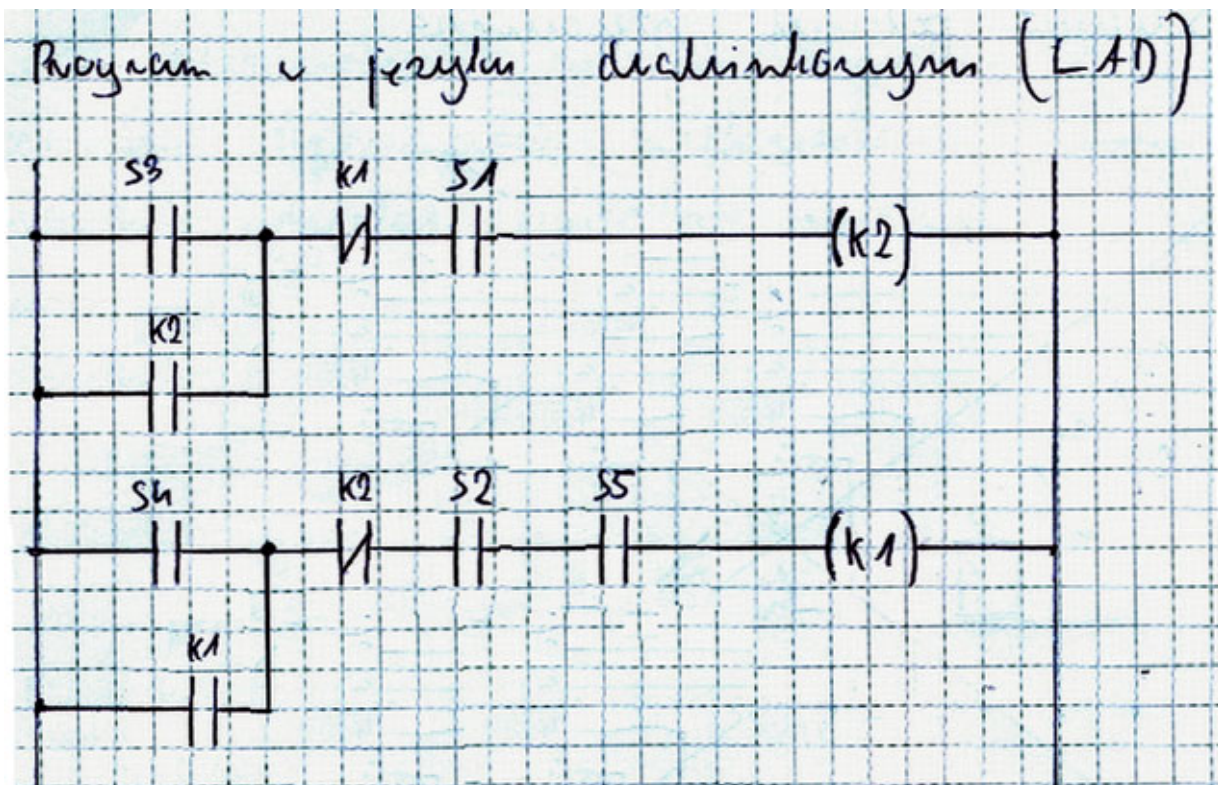 Program w języku drabinkowym (LAD)
S3 K1 S1
(K2)
K2
S4 K2 S2 S5
(K1)
K1